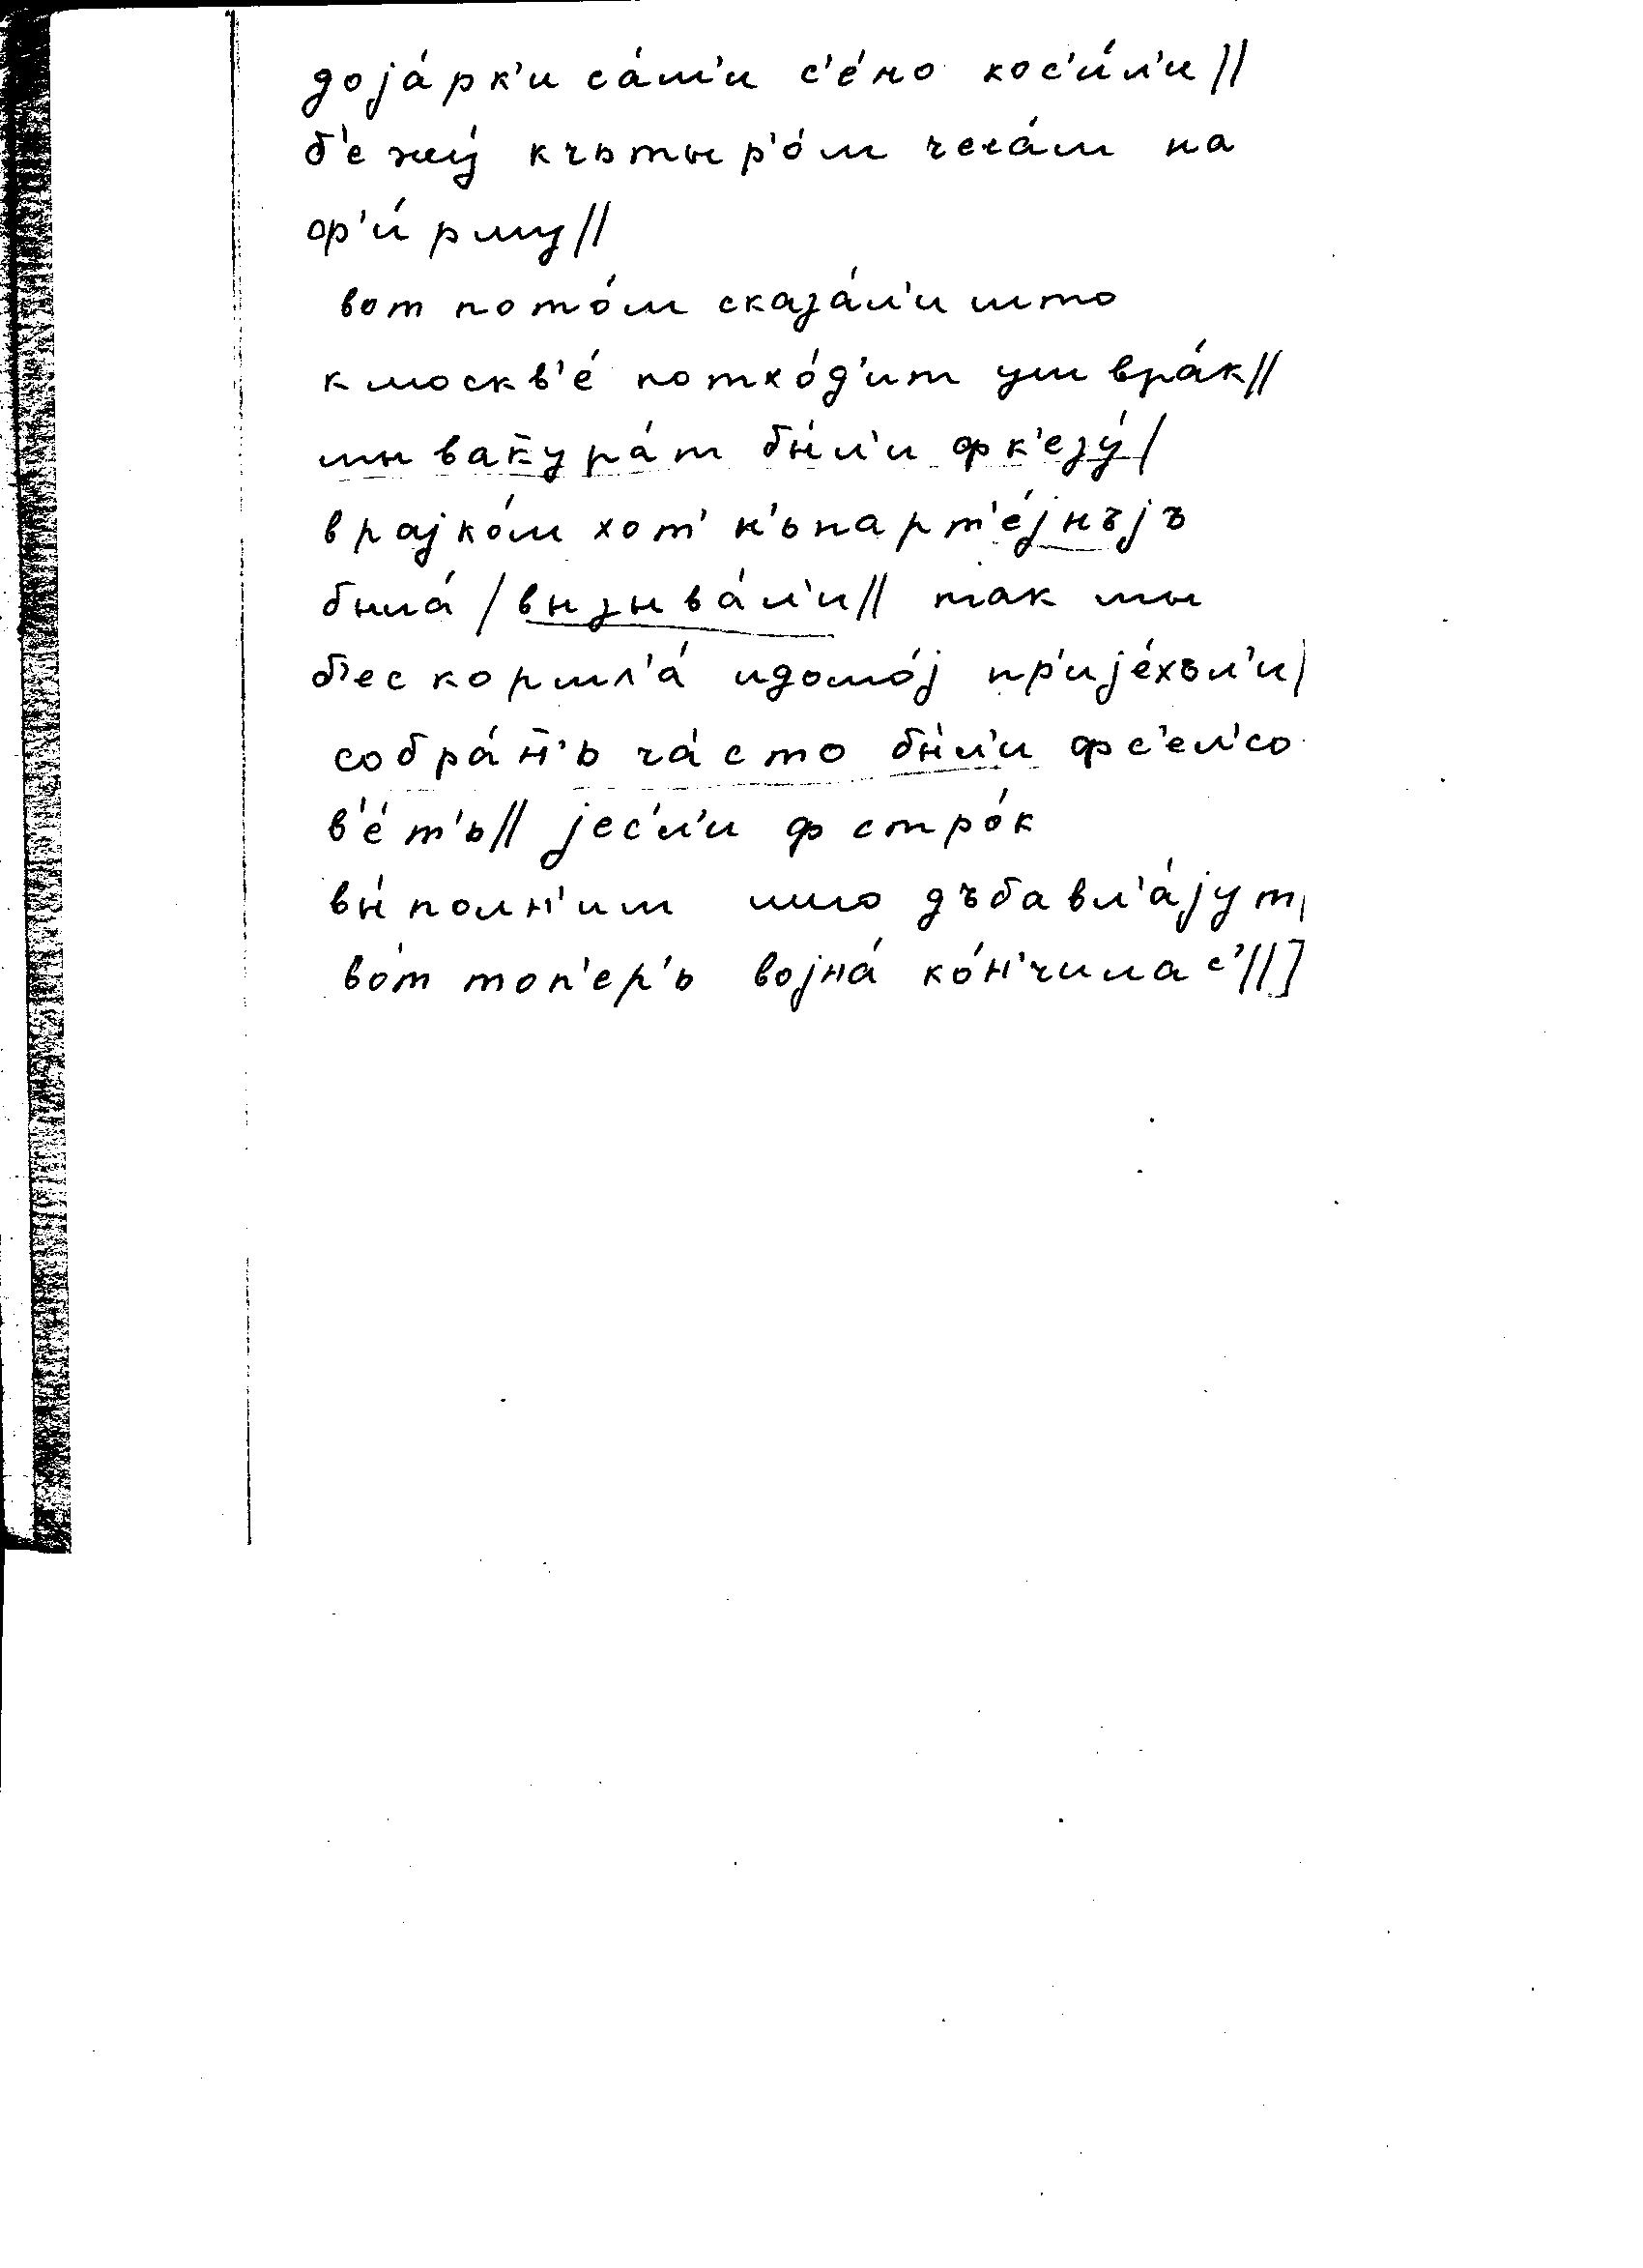 доjа́рк'и са́м'и с'е́но кос'и́л'и//
б'ежу́ кчьтыр'о́м чеса́м на
ф'и́рму//
вот пото́м сказа́л'и што
кмоскв'е́ потхо́д'ит уш вра́к//
мы вакӯра́т бы́л'и фк'езу́/
врајко́м хот' н'ьпарт'е́јнъјъ
была́ /вызыва́л'и// так мы
б'ескормл'а́ идомо́ј пр'ије́хъл'и/
собра́н̄'ь ча́сто бы́л'и фс'ел'со
в'е́т'ь// јес'л'и фстро́к
вы́полн'им мно дъбавл'а́јут/
во́т топ'ер'ь војна́ ко́н'чилас'//]